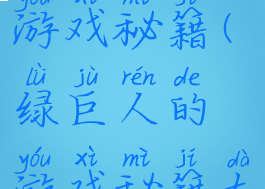 yóu xì mì jí
游戏秘籍(
lǜ jù rén de
绿巨人的
yóu xì mì jí dà
游戏秘籍大